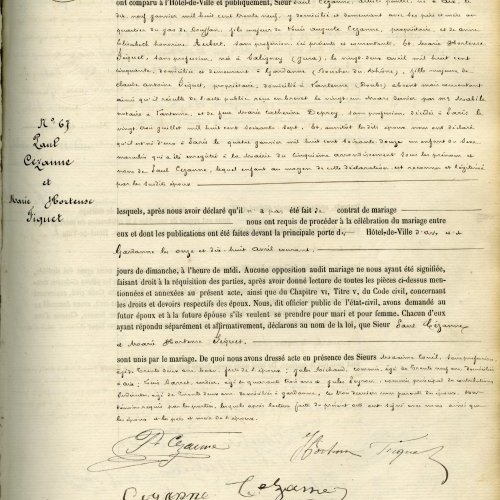 ont comparu à l'Hôtel-de-Ville et publiquement, Sieur Paul Cézanne, artiste peintre, né à Aix, le
dix neuf janvier mil huit cent trente neuf, y domicilié et demeurant avec ses père et mère au
quartier du Jas de Bouffan, fils majeur de Louis auguste Cézanne, propriétaire, et de anne
Elisabeth honorine Aubert, sans profession, ici présents et consentants, et Marie Hortense
Fiquet, sans profession, née à Saligney (Jura), le vingt deux avril mil huit cent
cinquante, domiciliée et demeurant à Gardanne (Bouches du Rhône), fille majeure de
claude antoine Fiquet, propriétaire, domicilié à Lantenne (Doubs) absent mais consentant
ainsi qu'il résulte de l'acte public reçu en brevet le vingt un mars dernier par me Mabile
notaire à Lantenne, et de feue Marie catherine Deprey, sans profession, décédée à Paris le
vingt juillet mil huit cent soixante sept. et aussitôt les dits époux nous ont déclaré
qu'il est né d'eux à Paris le quatre janvier mil huit cent soixante douze un enfant du sexe
masculin qui a été enregistré à la Mairie du cinquième arrondissement sous les prénom et
nom de Paul Cézanne, lequel enfant au moyen de cette déclaration est reconnu et légitimé
par les susdits époux
N° 67
Paul
Cézanne
et
Marie Hortense
Fiquet
lesquels, après nous avoir déclaré qu'il n'a pas été fait de contrat de mariage
nous ont requis de procéder à la célébration du mariage entre
eux et dont les publications ont été faites devant la principale porte des Hôtel-de-Ville d'aix et de
Gardanne les onze et dix-huit avril courant,
jours de dimanche, à l'heure de midi. Aucune opposition audit mariage ne nous ayant été signifiée,
faisant droit à la réquisition des parties, après avoir donné lecture de toutes les pièces ci-dessus men-
tionnées et annexées au présent acte, ainsi que du Chapitre VI, Titre V, du Code civil, concernant
les droits et devoirs respectifs des époux. Nous, dit officier public de l'état-civil, avons demandé au
futur époux et à la future épouse s'ils veulent se prendre pour mari et pour femme. Chacun d'eux
ayant répondu séparément et affirmativement, déclarons au nom de la loi, que Sieur Paul Cézanne
et Marie Hortense Fiquet,
sont unis par le mariage. De quoi nous avons dressé acte en présence des Sieurs maxime Conil, sans profession,
âgé de trente deux ans, beau-frère de l'époux; jules Richaud, commis, âgé de trente neuf ans, domiciliés
à aix; Louis Barret, cordier, âgé de quarante trois ans et jules Peyron, commis principal des contributions
indirectes, âgé de trente deux ans, domicilié à gardanne,
les époux et le père et mère de l'époux.
P. Cezanne
Hortense Fiquet
Cezanne Cezanne